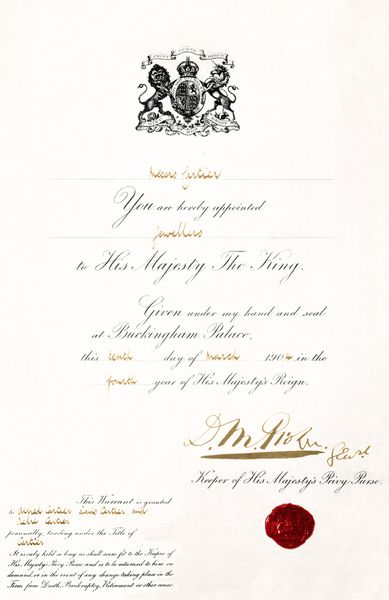 Messrs Cartier
You are hereby appointed
Jewellers
to His Majesty The King.
Given under my hand and seal
at Buckingham Palace.
this tenth day of March 1904 in the
fourth year of His Majesty's Reign.
Keeper of His Majesty's Privy Purse.
This Warrant is granted
to Alfred Cartier Louis Cartier and
Pierre Cartier
personally, trading under the Title of
Cartier
It is only held so long as shall seem fit to the Keeper of
His Majesty's Privy Purse, and is to be returned to him on
demand, or in the event of any change taking place in the
Firm from Death, Bankruptcy, Retirement or other cause.